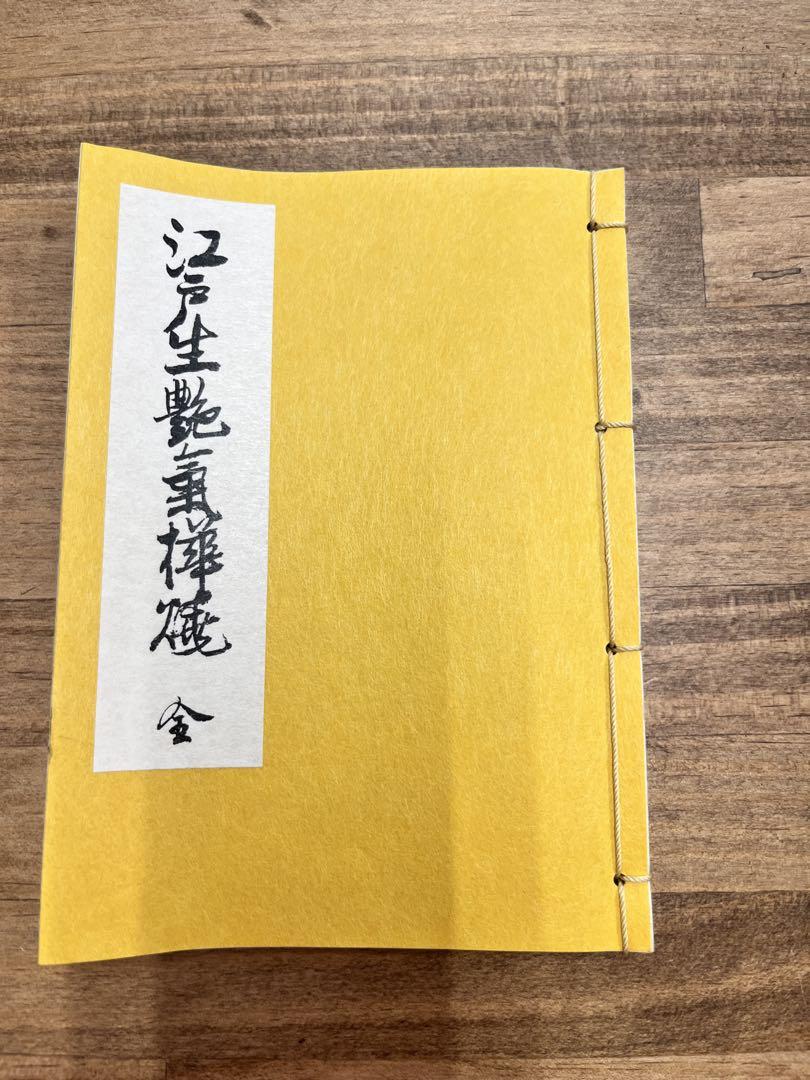 江戸生艶氣樺焼 全